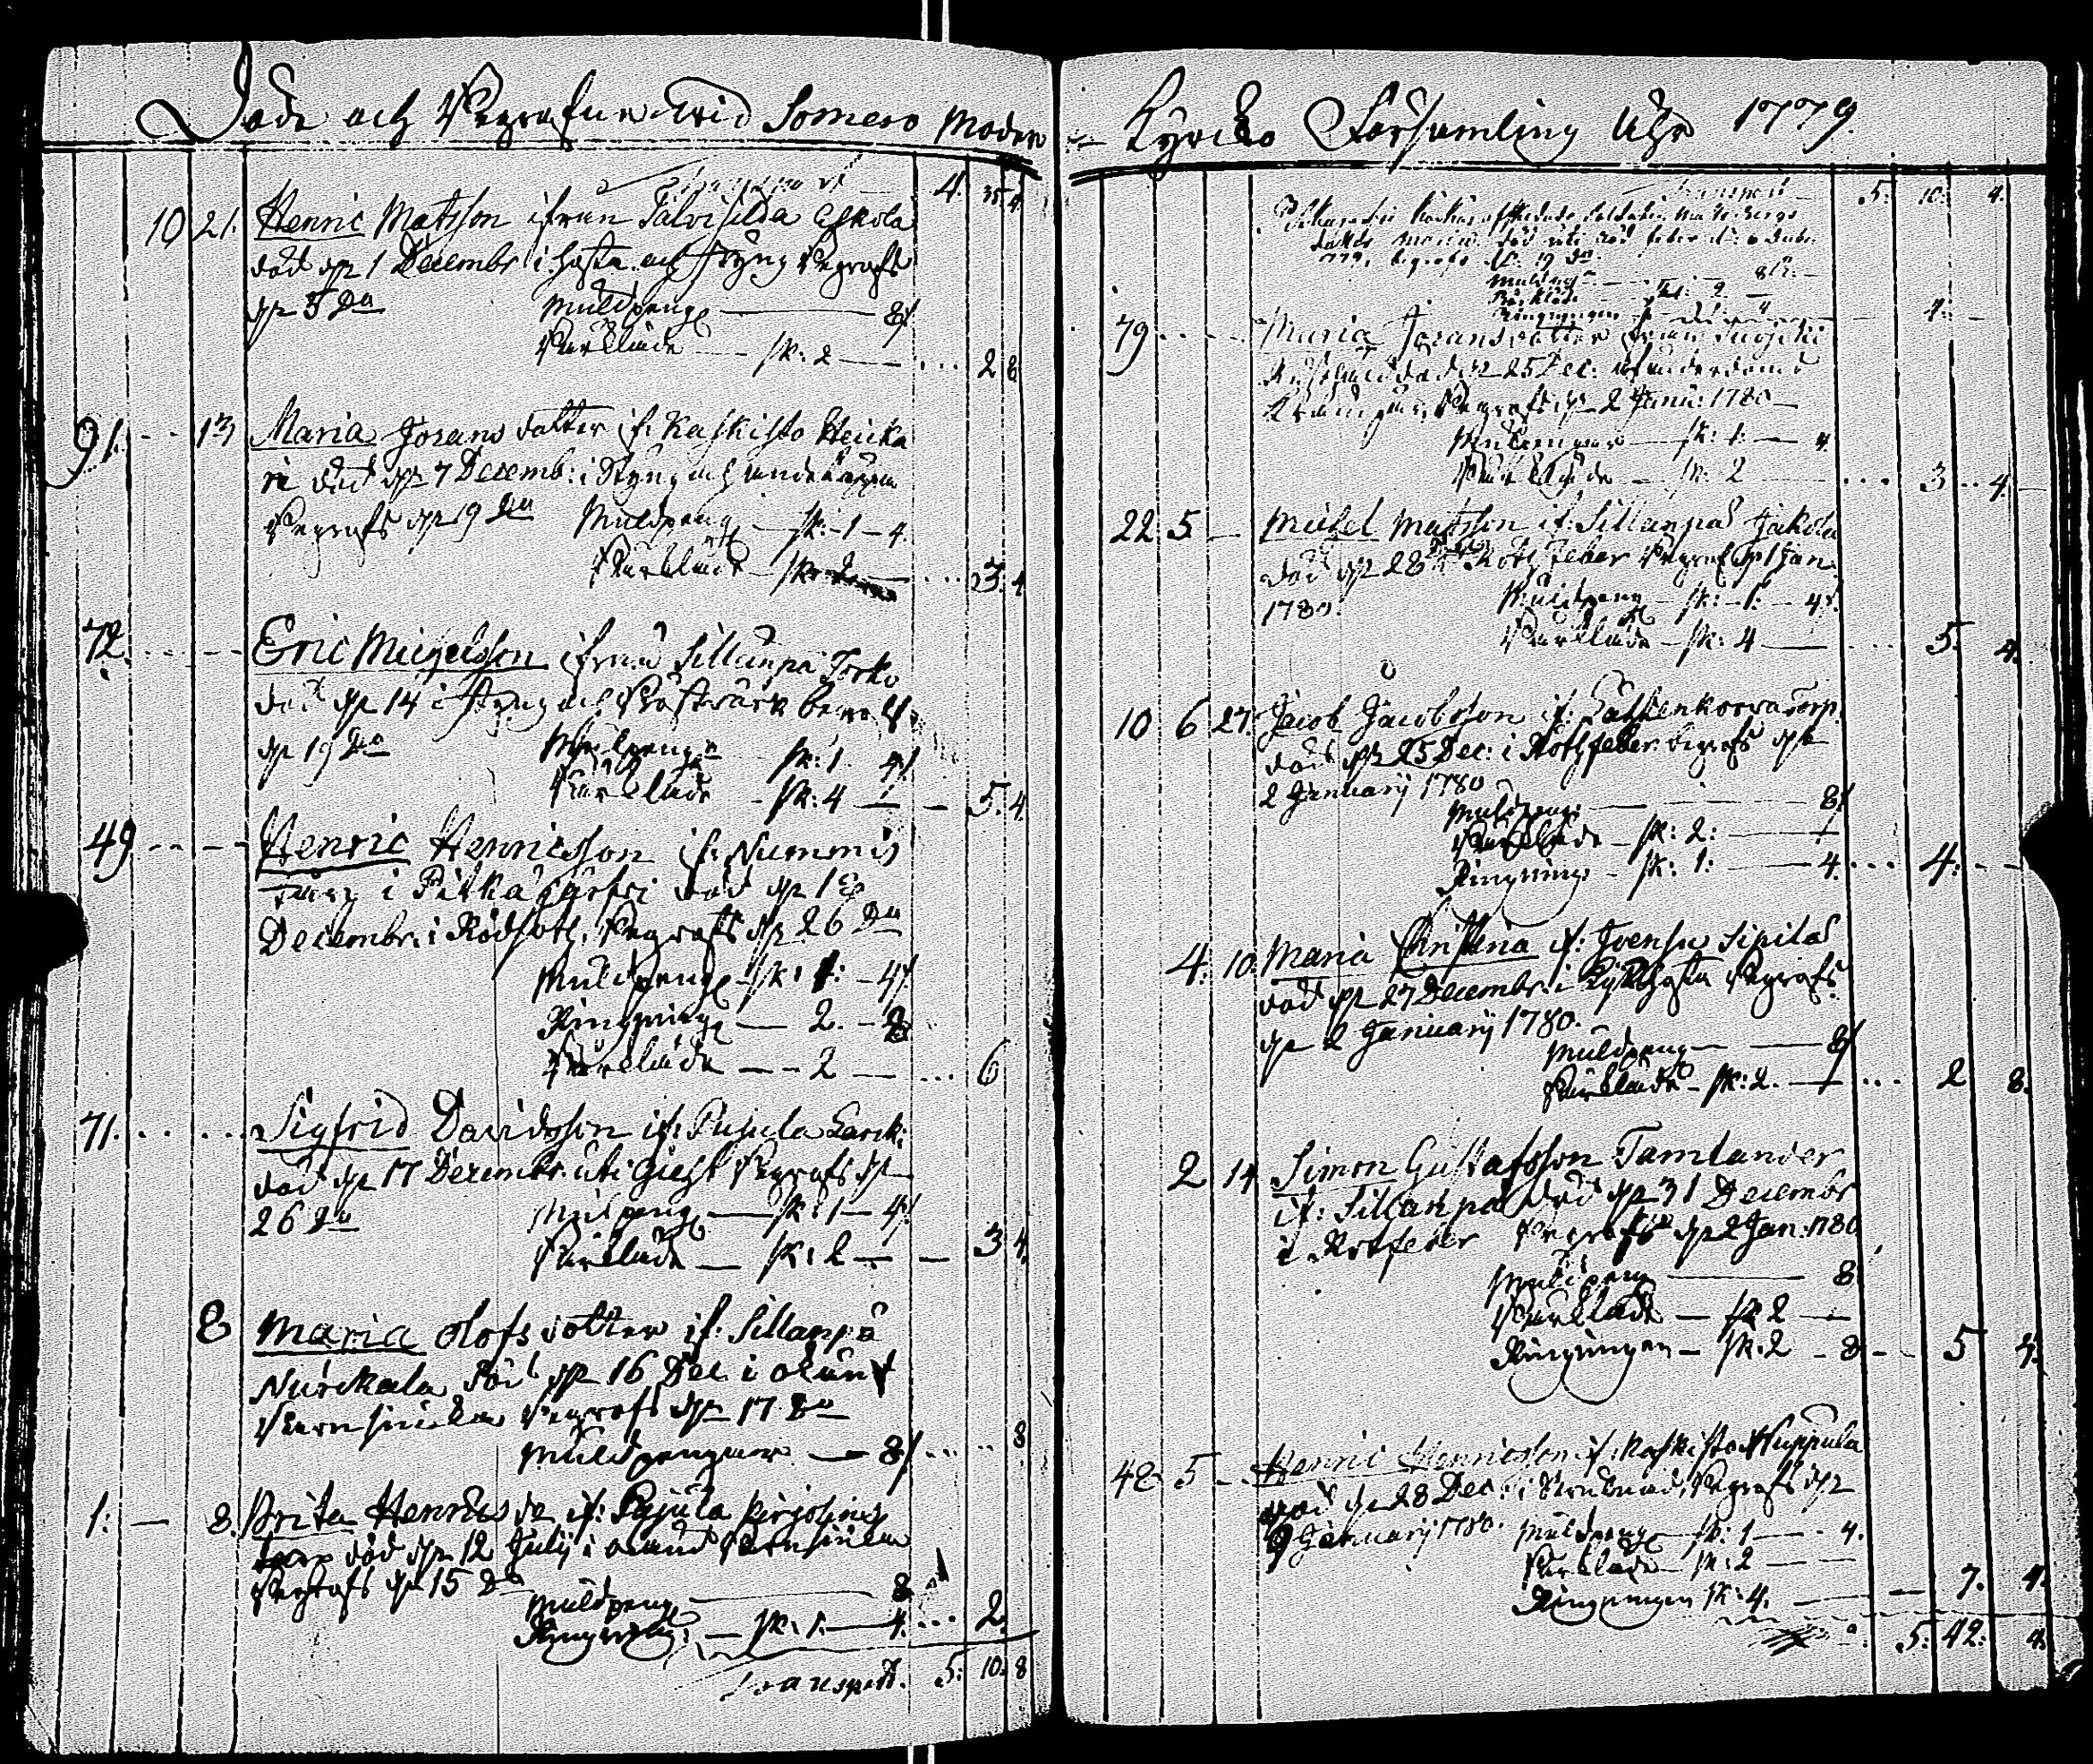 Döde och Begrafne wid Somero Moder
Transport 4. 35. 4.
10 21. Henric Matsson ifrån Talvisilda Eskola
död d. 1 Decembr i hosta och styng begrofs
d. 5 do Muldpeng 8/
Bårkläde sk: 2 ... 2 8
91. 13 Maria Jörans dotter if. Kaskisto Heicka
d. 7 Decemb: i styng och
Begrofs d. 19 do Muldpeng sk: 1 4.
Bårkläde sk: 2 ... 3. 4
72. Eric Michelsson ifrån Sillanpä Jorko
död d. 14 i styng och Bröstvärk begrofs
d. 19 do Muldpeng sk: 1 4/
Bårkläde sk: 4 5. 4.
49 Henric Henricsson if. Nummis
Torp i Pitkäjärfvi död d.
Decembr. i Rödsoth. Begrofs d. 26 do
Muldpeng sk: 1: 4/
Ringning 2. 8
Bårkläde 2 ... 6
71. Sigfrid Davidsson if. Pusula
död d. 17 Decembr. uti Begrofs d.
26 do Muldpeng sk: 1 4/
Bårkläde sk: 2 3 4.
8 Maria Olofs dotter if. Sillanpä
Nurckala död d. 16 Dec. i okänd
Barnsiuka Begrofs d. 17 do
Muldpengar 8/ ... 8
1. 8. Brita Henrics dr if: Pajula
torp död d. 12 Julij i okänd Barnsiuka
Begrofs d. 15 do
Muldpeng 8
Ringning sk: 1. 4. ... 2.
Transport. 5. 10. 8
Kyrcko Församling Åhr 1779.
Transport 5. 10. 4.
Soldaten Matts Bergs
dotter Maria död uti röd feber
begrofs
Muldpeng 8
Bårkläde sk: 2
Ringningen 4.
79 Maria Jörans dotter ifrån
död d. 25 Dec: af ålderdom o
Begrofs d. 2 Janu: 1780
Muldpengar sk: 1. 4
Bårkläde sk: 2 ... 3 .. 4.
22 5 Michel Matsson if: Sillanpä Jakola
död d. 28 Rötfeber Begrof d. 1 Jan
1780. Muldpeng sk: 1. 4/.
Bårkläde sk: 4 5. 4.
10 6 27. Jacob Jacobsson if: torp.
död d. 25 Dec: i Rothfeber. begrofs d.
2 Januarij 1780
Muldpeng 8/
Bårkläde sk: 2:
Ringning sk: 1: 4. ... 4.
4. 10. Maria Christina if: Joensu Sipilä
död d. 27 Decembr. i Kikhosta Begrofs
d. 2 Januarij 1780.
Muldpeng 8/
Bårkläde sk: 2. ... 2 8.
2 14 Simon Gustafsson Tamlander
if: Sillanpä död d. 31 Decembr
i Rötfeber Begrofs d. 2 Jan: 1780
Muldpeng 8
Bårkläde sk 2
Ringningen sk: 2 8 5 4.
48 5 Henric Henricsson if: Kaskisto Huppula
död d. 28 Dec: i Begrofs d.
9 Januarij 1780. Muldpeng sk: 1 4.
Bårkläde sk: 2
Ringningen sk: 4. 7. 4.
5. 42. 4.